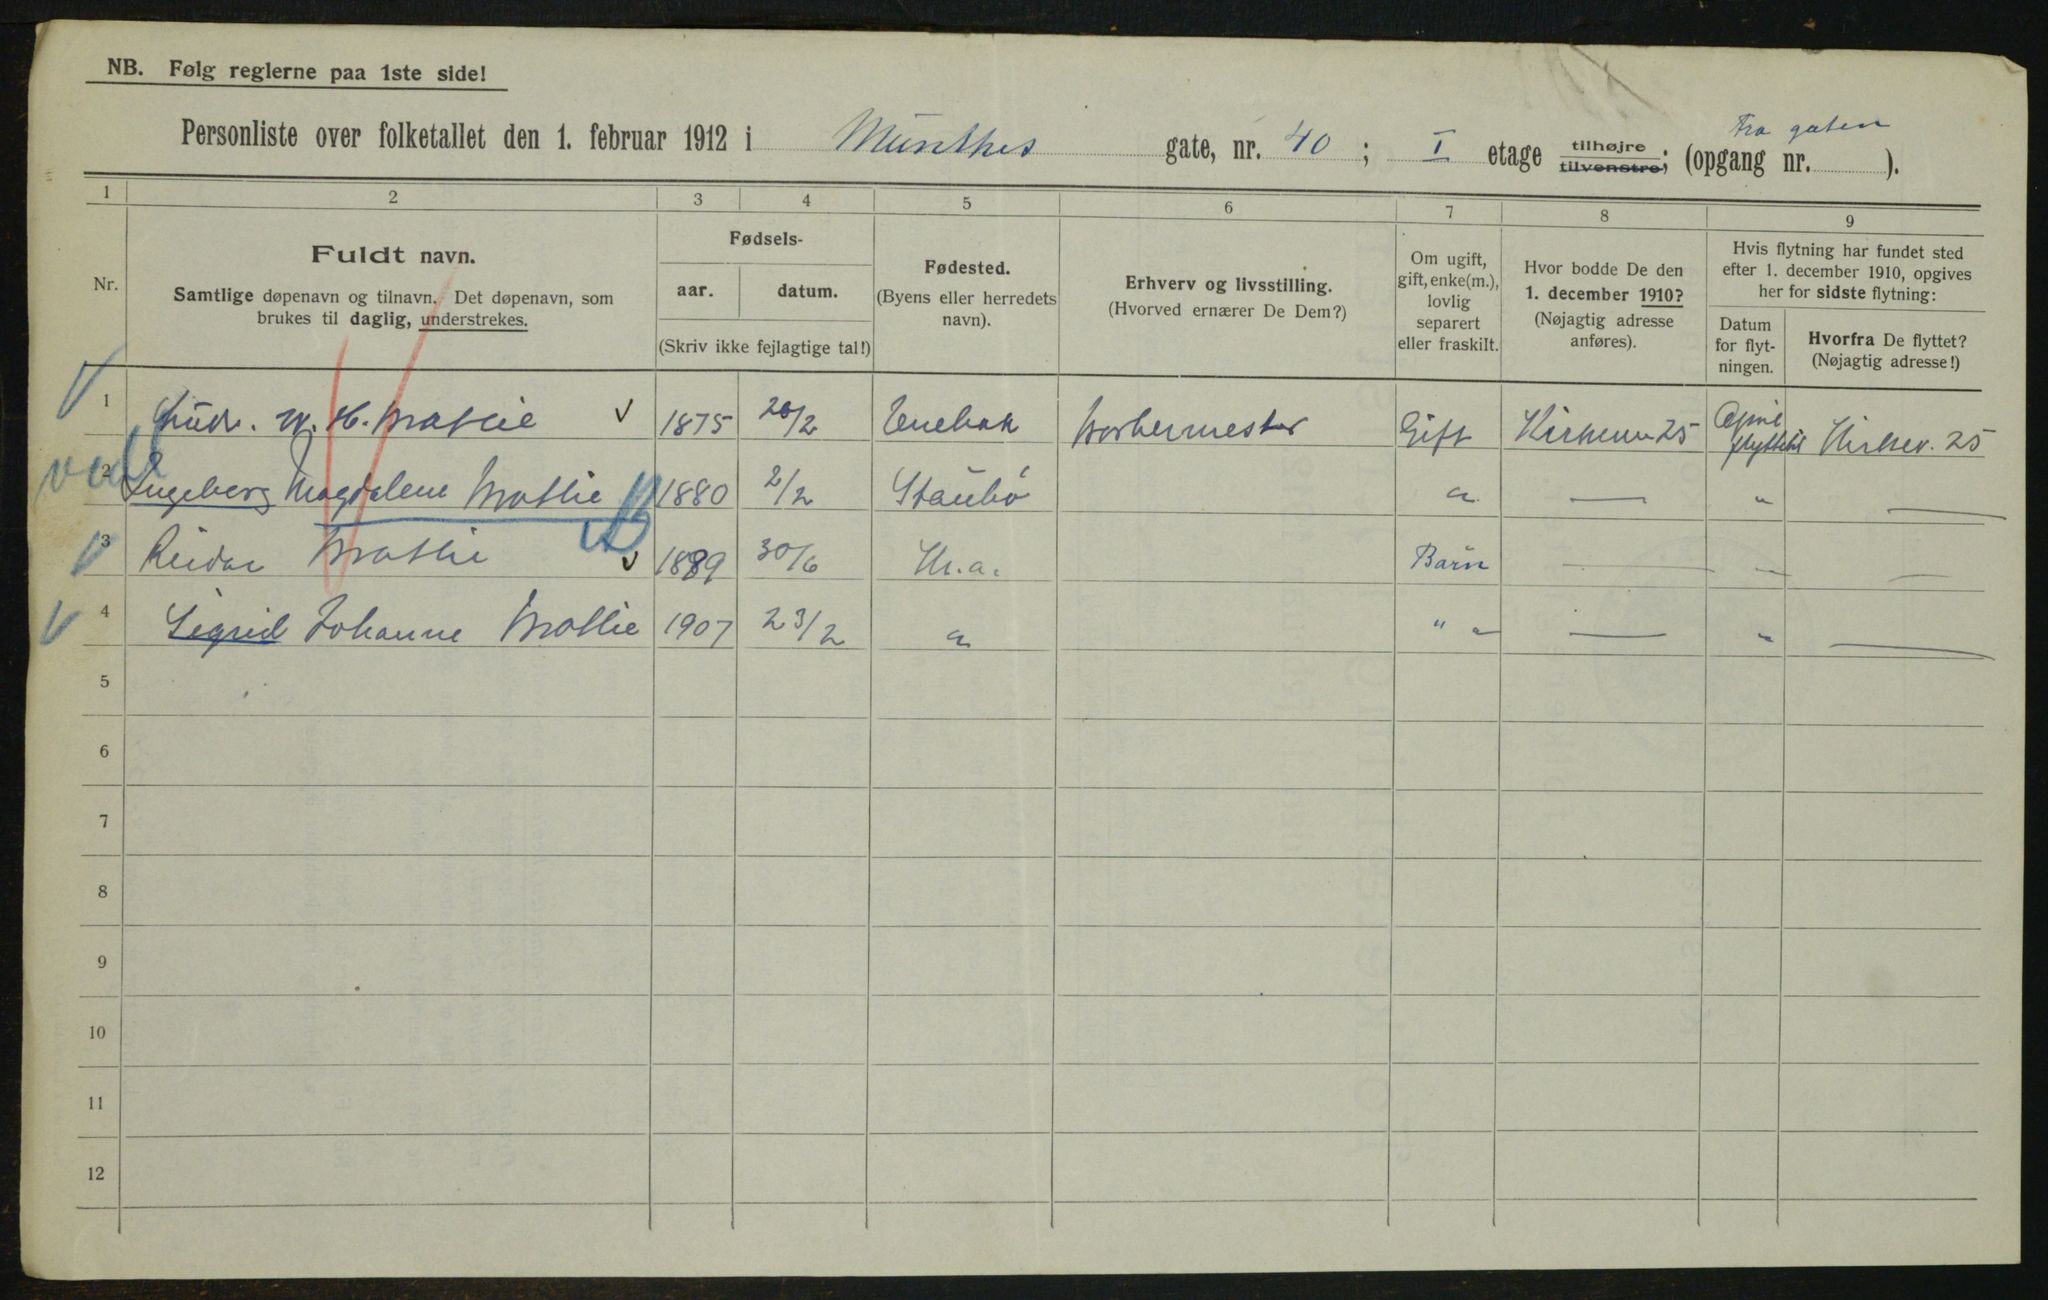 NB. Følg reglerne paa 1ste side!
Fra gaten
Personliste over folketallet den 1. februar 1912 i Munthes gate, nr. 40; I etage tilhøjre tilvenstre; (opgang nr. ).
1 2 3 4 5 6 7 8 9
Nr.
Fuldt navn.
Samtlige døpenavn og tilnavn. Det døpenavn, som
brukes til daglig, understrekes.
Fødsels-
aar. datum.
(Skriv ikke fejlagtige tal!)
Fødested.
(Byens eller herredets
navn).
Erhverv og livsstilling.
(Hvorved ernærer De Dem?)
Om ugift,
gift, enke(m.),
lovlig
separert
eller fraskilt.
Hvor bodde De den
1. december 1910?
(Nøjagtig adresse
anføres).
Hvis flytning har fundet sted
efter 1. december 1910, opgives
her for sidste flytning:
Datum
for flyt-
ningen.
Hvorfra De flyttet?
(Nøjagtig adresse!)
1 H. 1875 20/2 Enebak Gift 25 April Kirkev. 25
2 Ingeborg Magdalene 1880 2/2 Staubø " — " —
3 Reidar 30/6 Kr.a. Barn — " —
4 Sigrid Johanne 1907 23/2 " " " — " —
5
6
7
8
9
10
11
12